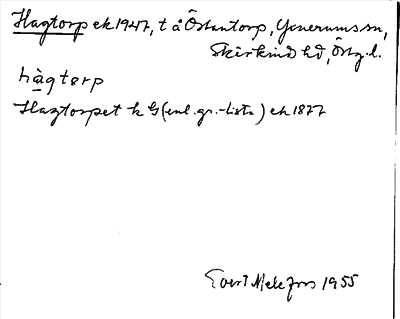 Hagtorp ek 1947, t å Östantorp, Yxnerums sn,
Skärkind hd, Östg.l.
hàgtorp
Hagtorpet k G (enl. gr.-lista) ek 1877
Evert Melefors 1955